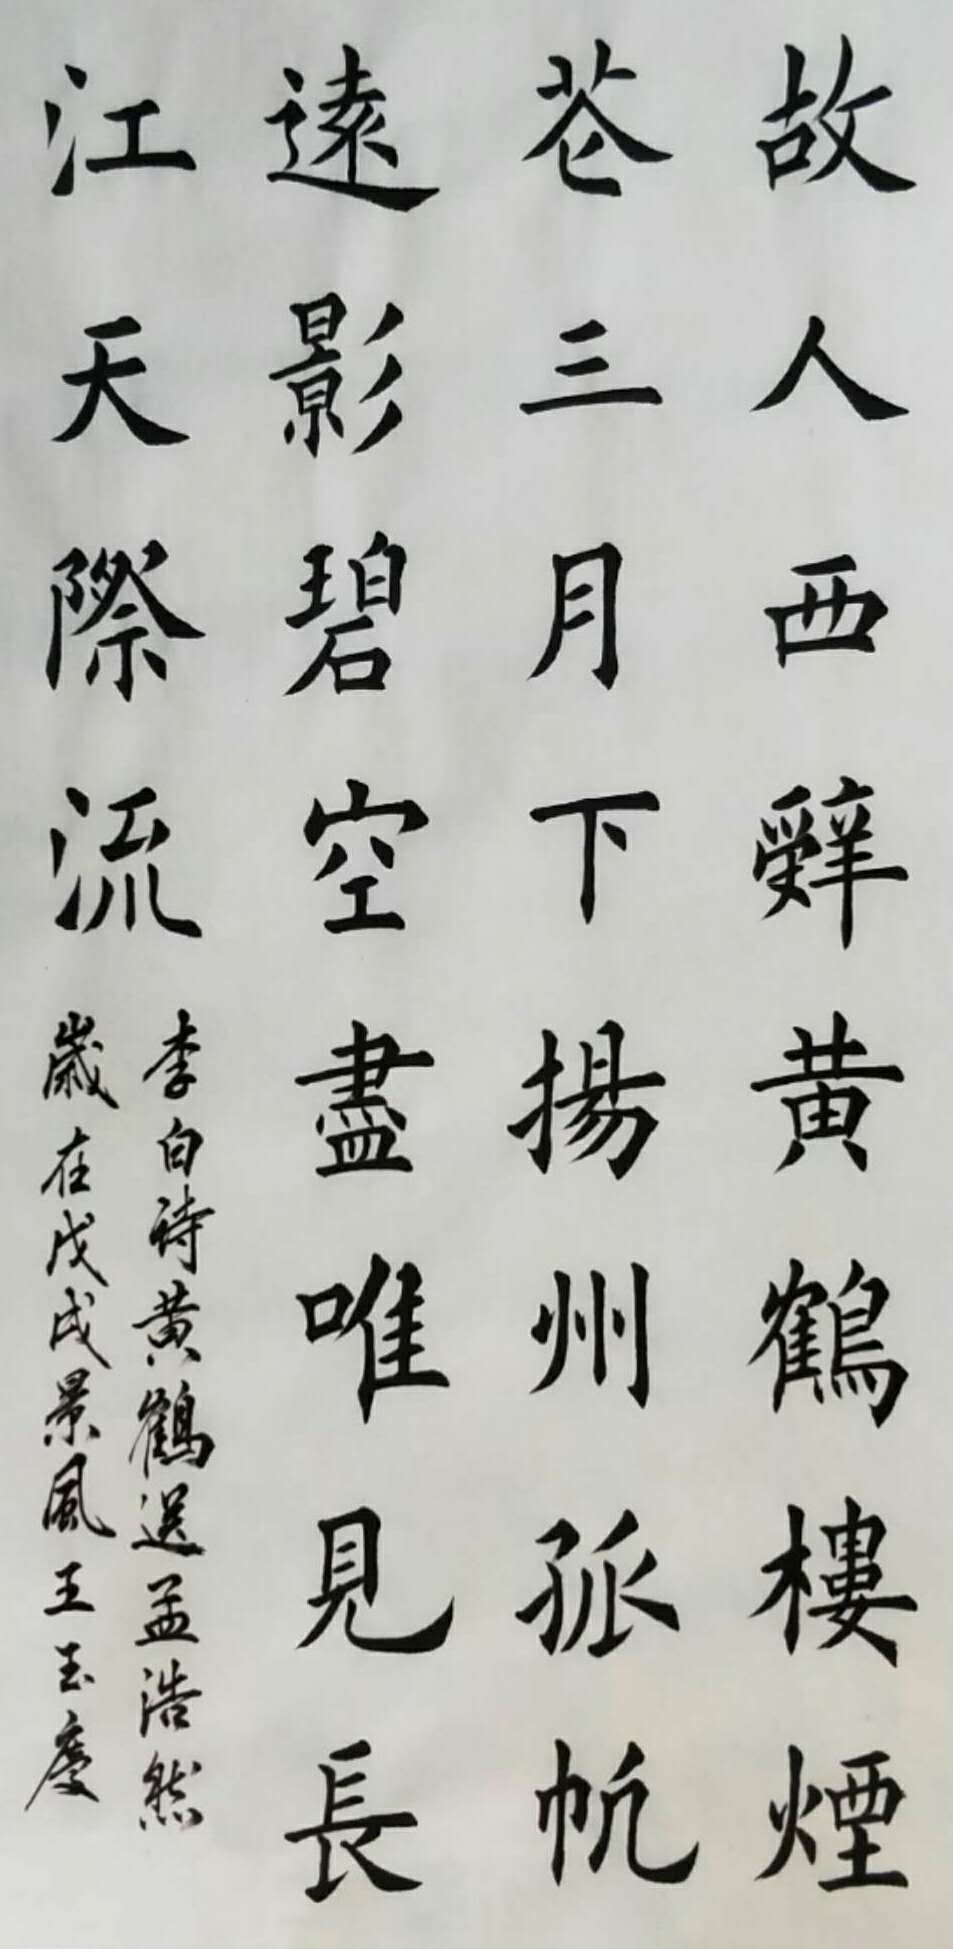 故人西辭黄鶴樓煙
苍三月下揚州孤帆
遠影碧空盡唯見長
江天際流
李白詩黄鶴送孟浩然
歲在戊戌景風王玉慶